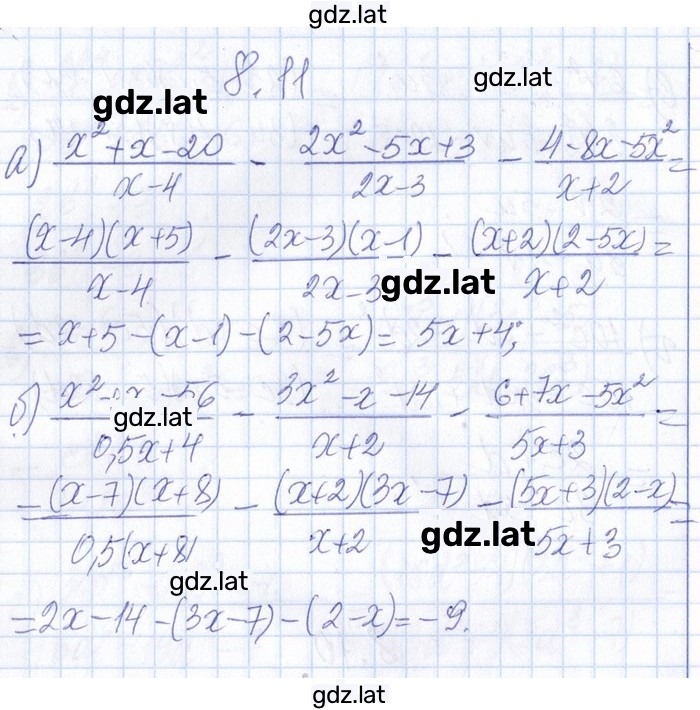 gdz.lat
8.11
gdz.lat
gdz.lat
а) (x² + x - 20)/(x - 4) - (2x² - 5x + 3)/(2x - 3) - (4 - 8x - 5x²)/(x + 2) =
((x - 4)(x + 5))/(x - 4) - ((2x - 3)(x - 1))/(2x - 3) - ((x + 2)(2 - 5x))/(x + 2) =
gdz.lat
= x + 5 - (x - 1) - (2 - 5x) = 5x + 4;
б) (x² + x - 56)/(0,5x + 4) - (3x² - x - 14)/(x + 2) - (6 + 7x - 5x²)/(5x + 3) =
gdz.lat
= ((x - 7)(x + 8))/(0,5(x + 8) - ((x + 2)(3x - 7))/(x + 2) - ((5x + 3)(2 - x))/(5x + 3) =
gdz.lat
gdz.lat
= 2x - 14 - (3x - 7) - (2 - x) = - 9.
gdz.lat